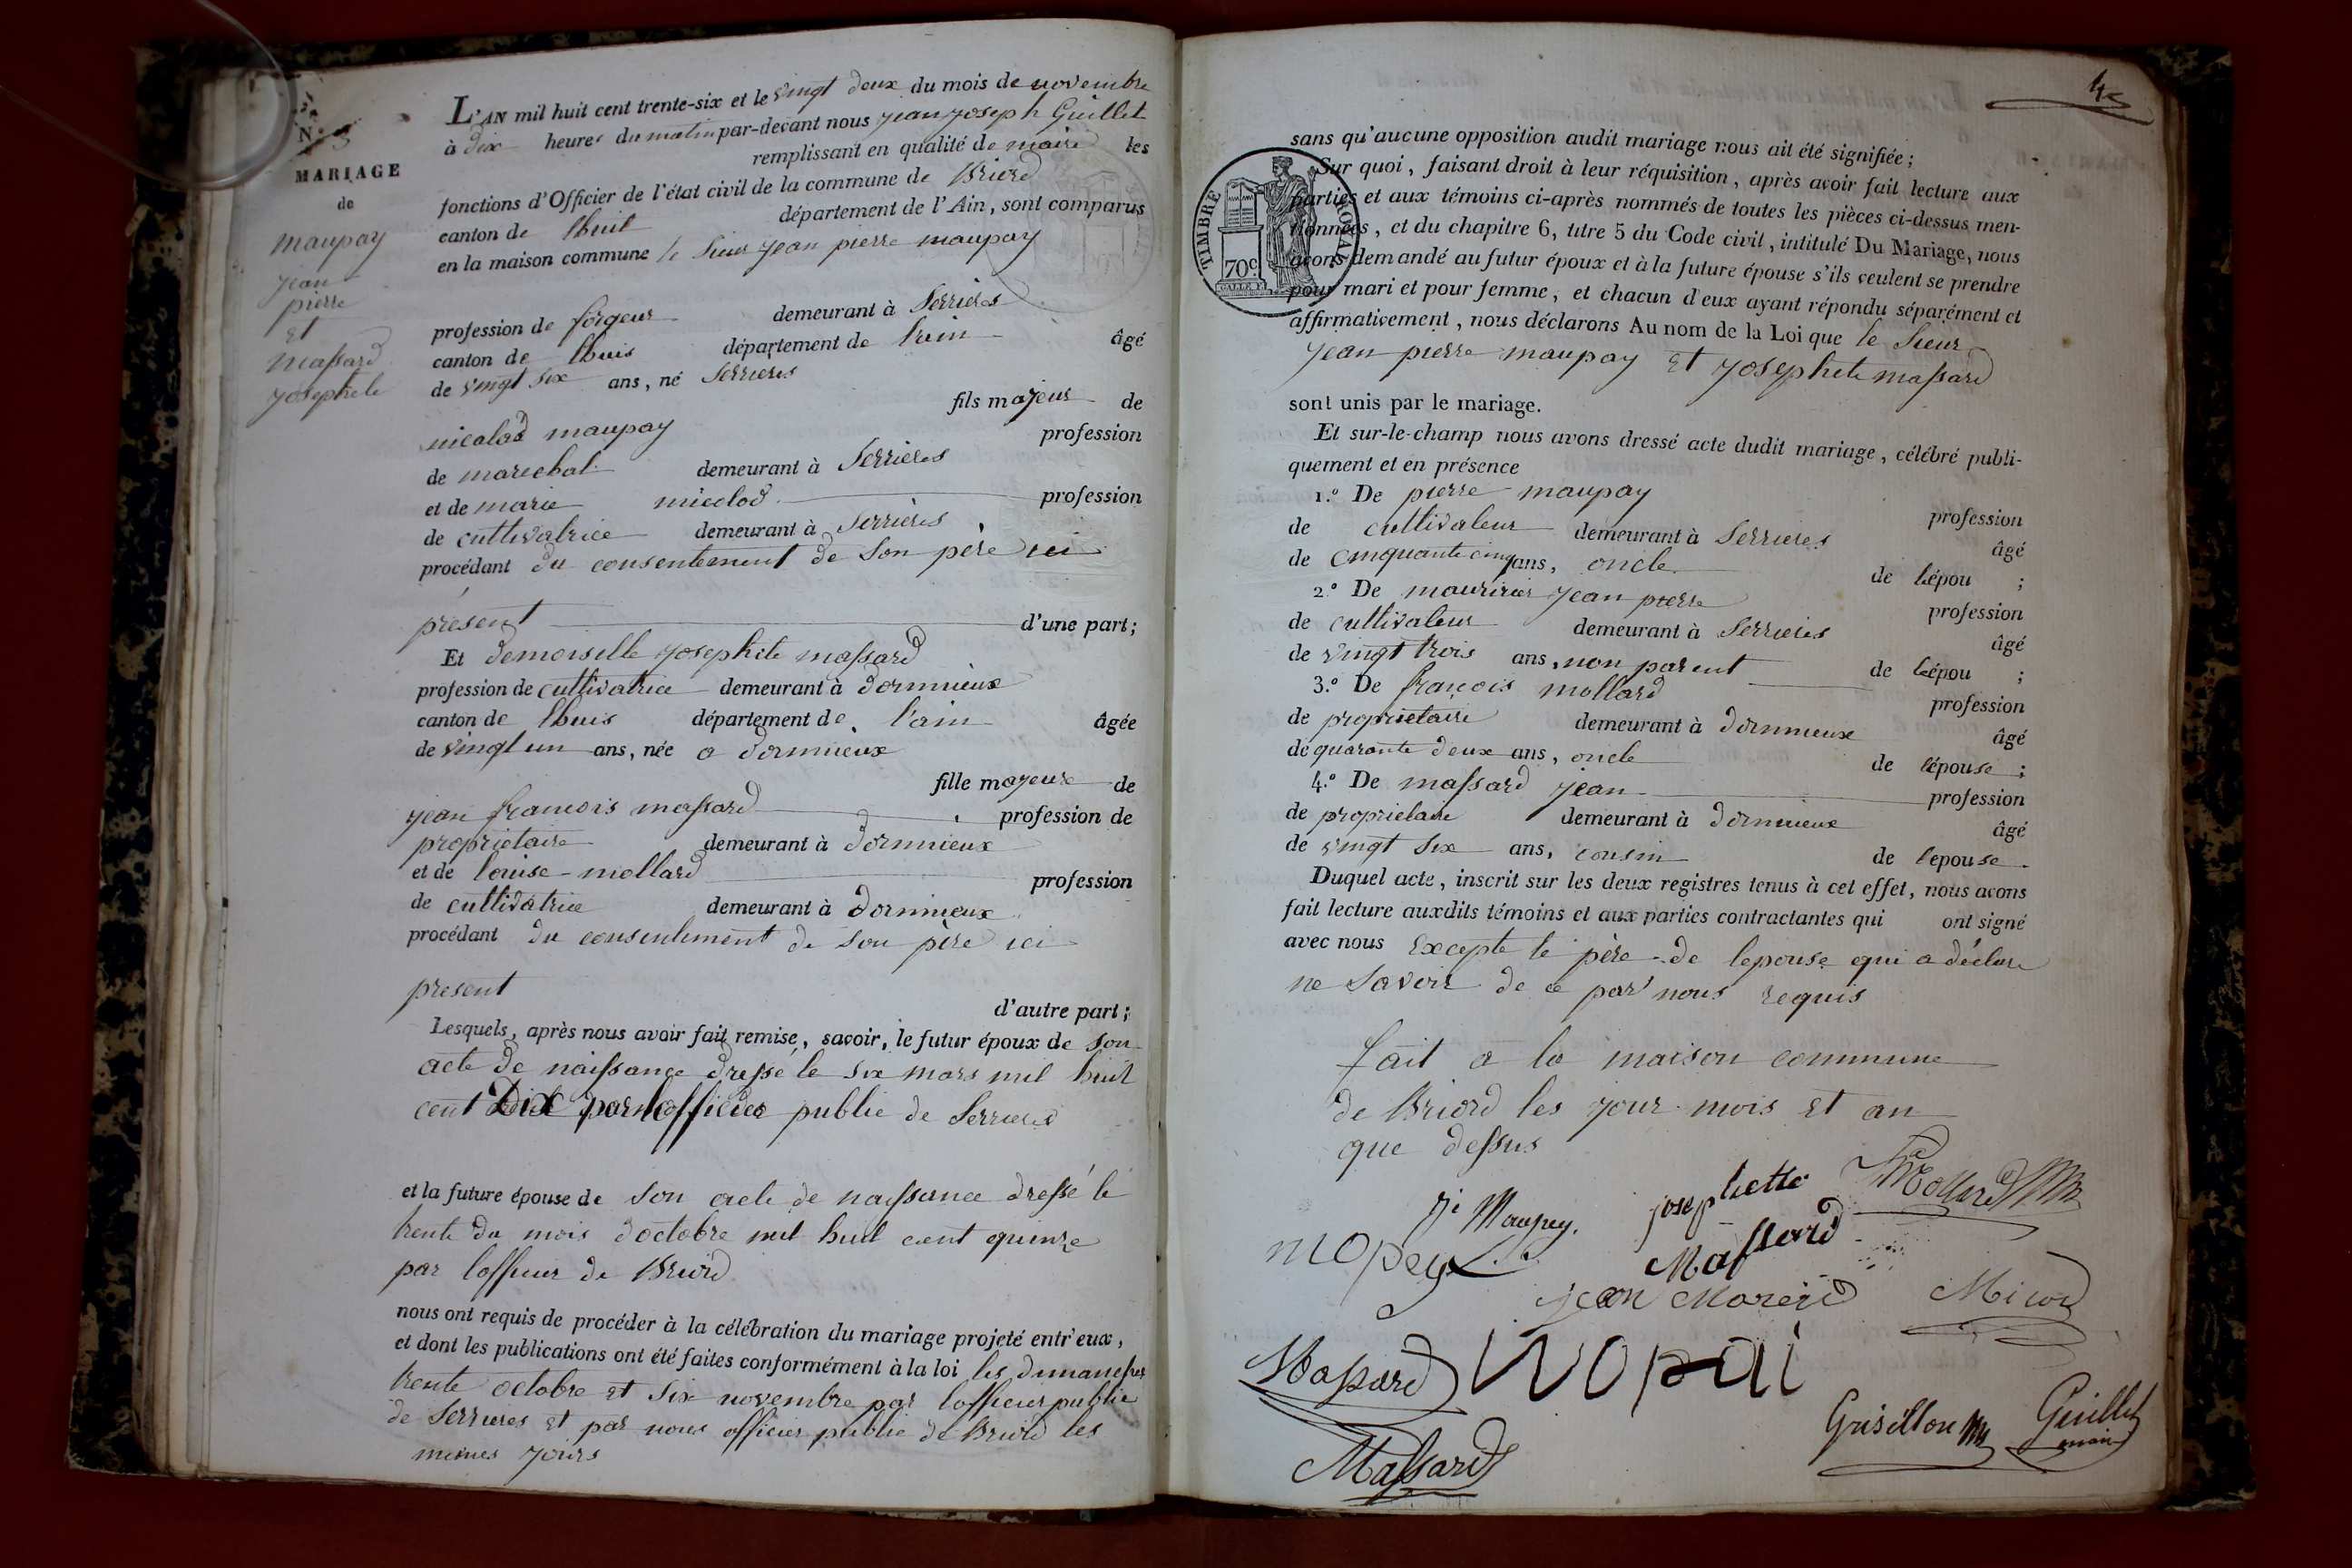 N.º 3
MARIAGE
de
maupay
jean
pierre
Et
massard
josephete
L'AN mil huit cent trente-six et le vingt deux du mois de novembre
à dix heures du matin par-devant nous jean joseph Guillet
remplissant en qualité de maire les
fonctions d'Officier de l'état civil de la commune de Briord
canton de lhuil département de l'Ain, sont comparus
en la maison commune le Sieur jean pierre maupay
profession de forgeur demeurant à Serrieres
canton de lhuis département de lain âgé
de vingt six ans, né Serrieres
fils majeur de
nicolas maupay profession
de marechal demeurant à Serrieres
et de marie profession
de cultivatrice demeurant à Serrieres
procédant du consentement de Son père ici
présent d'une part;
Et demoiselle josephete massard
profession de cultivatrice demeurant à dornnieux
canton de lhuis département de l'ain âgée
de vingt un ans, née a dornnieux
fille majeure de
jean francois massard profession de
proprietaire demeurant à dornnieux
et de louise mollard profession
de cultivatrice demeurant à dornnieux
procédant du consentement de Son père ici
present d'autre part;
Lesquels, après nous avoir fait remise, savoir, le futur époux de Son
acte de naissance dressé le six mars mil huit
cent Dix par lofficier public de Serrieres
et la future épouse de son acte de naissance dressé le
trente du mois doctobre mil huit cent quinze
par lofficier de Briord
nous ont requis de procéder à la célébration du mariage projeté entr'eux,
et dont les publications ont été faites conformément à la loi les dimanches
trente octobre et Six novembre par lofficier public
de Serrieres et par nous officier public de Briord les
memes jours
TIMBRE ROYAL
70c.
sans qu'aucune opposition audit mariage nous ait été signifiée;
Sur quoi, faisant droit à leur réquisition, après avoir fait lecture aux
parties et aux témoins ci-après nommés de toutes les pièces ci-dessus men-
tionnées, et du chapitre 6, titre 5 du Code civil, intitulé Du Mariage, nous
avons demandé au futur époux et à la future épouse s'ils veulent se prendre
pour mari et pour femme, et chacun d'eux ayant répondu séparément et
affirmativement, nous déclarons Au nom de la Loi que le Sieur
jean pierre maupay Et josephete massard
sont unis par le mariage.
Et sur-le-champ nous avons dressé acte dudit mariage, célébré publi-
quement et en présence
1.º De pierre maupay profession
de cultivateur demeurant à Serrieres âgé
de cinquante cinq ans, oncle de lépou ;
2.º De jean pierre profession
de cultivateur demeurant à Serrieres âgé
de vingt trois ans, non parent de lépou ;
3.º De françois mollard profession
de proprietaire demeurant à dornnieux âgé
de quarante deux ans, oncle de lépouse ;
4.º De massard jean profession
de proprietaire demeurant à dornnieux âgé
de vingt Six ans, cousin de lepouse.
Duquel acte, inscrit sur les deux registres tenus à cet effet, nous avons
fait lecture auxdits témoins et aux parties contractantes qui ont signé
avec nous Excepté le père de lepouse qui a déclare
ne Savoir de ce par nous requis
fait a la maison commune
de Briord les jour mois et an
que dessus
Maupey. josephette Mollard
mopey Massard
jean
Massard mopai
Grisillon Guillet
maire
Massard